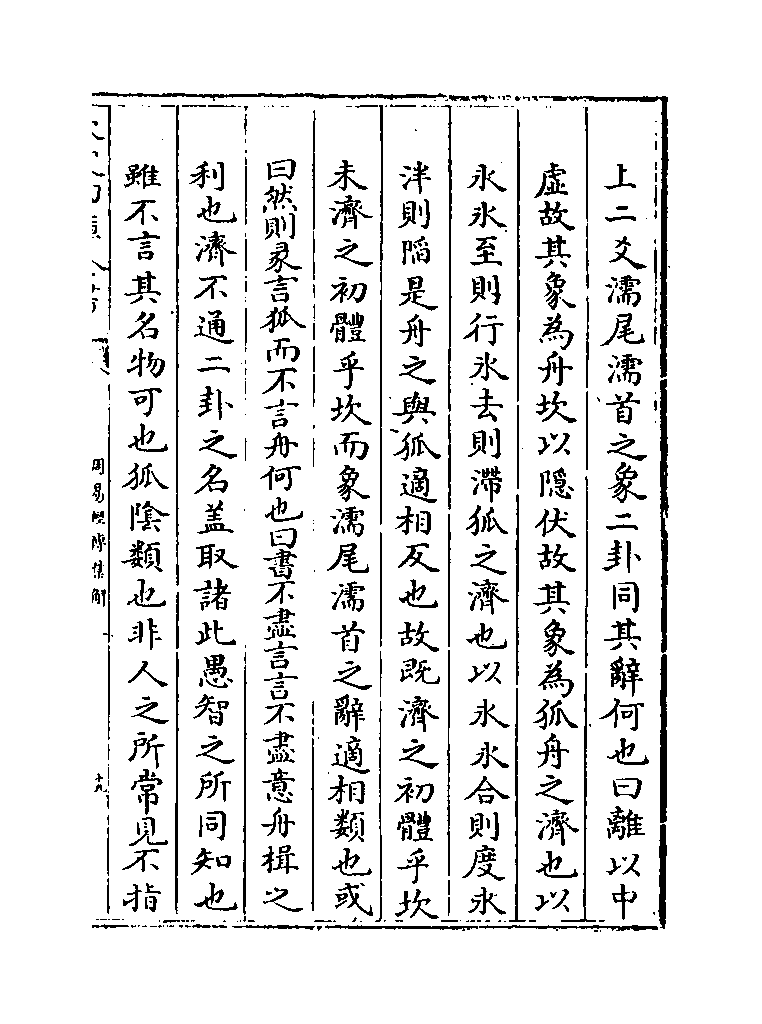 上二爻濡尾濡首之象二卦同其辭何也曰離以中
虛故其象為舟坎以隱伏故其象為狐舟之濟也以
水水至則行水去則滯狐之濟也以氷氷合則度氷
泮則陷是舟之與狐適相反也故既濟之初體乎坎
未濟之初體乎坎而象濡尾濡首之辭適相類也或
曰然則彖言狐而不言舟何也曰書不盡言言不盡意舟楫之
利也濟不通二卦之名盖取諸此愚智之所同知也
雖不言其名物可也狐陰類也非人之所常見不指
周易經傳集解
十九